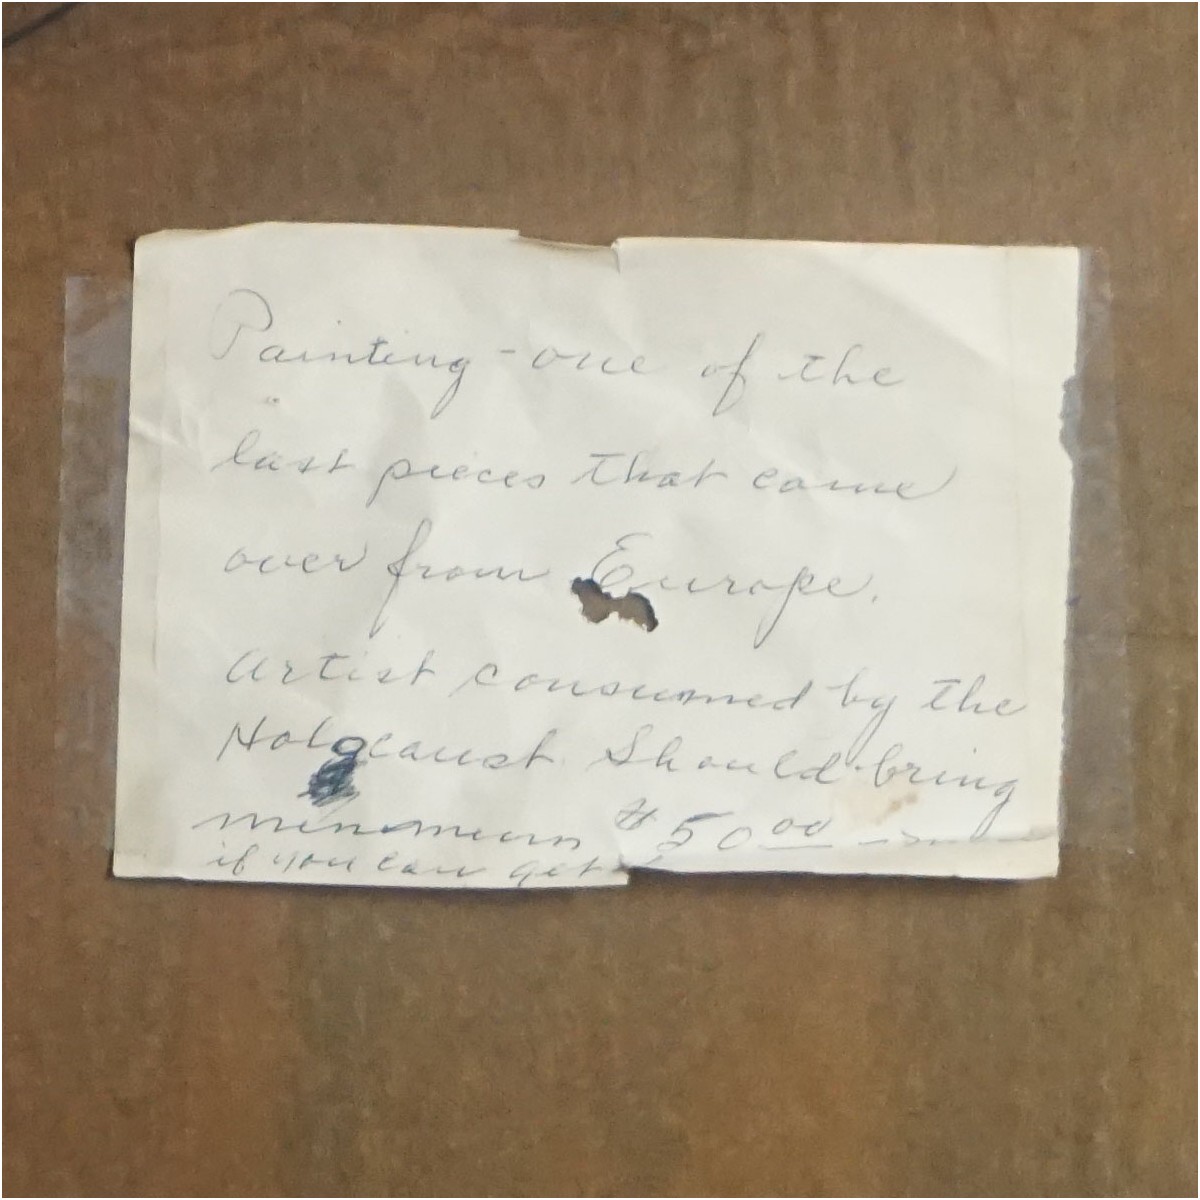 Painting - one of the
last pieces that came
over from Europe.
Artist consumed by the
Holocaust Should bring
minimum $50 00
if you can get